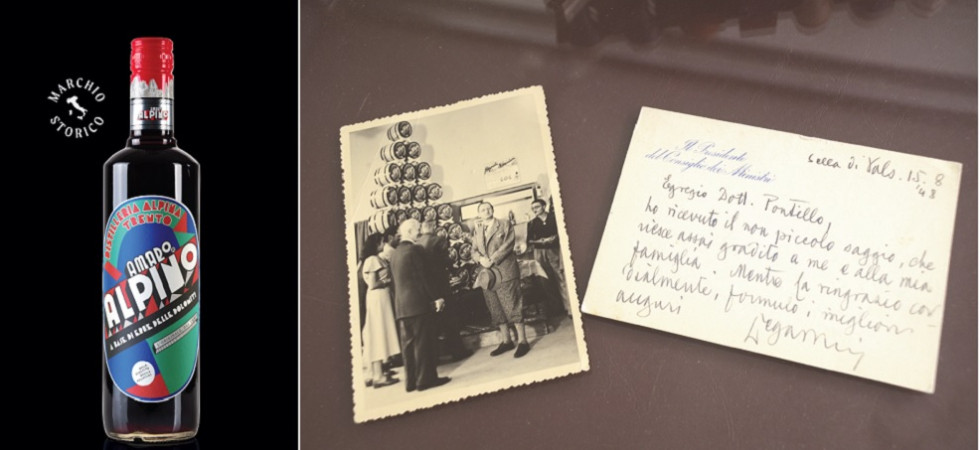 MARCHIO
STORICO
ALPINO
DISTILLERIA ALPINA
TRENTO
AMARO
ALPINO
A BASE DI ERBE DELLE DOLOMITI
Il Presidente
del Consiglio dei Ministri
Sella di Vals. 15.8
'48
Egregio Dott. Pontillo,
ho ricevuto il non piccolo saggio, che
riesce assai gradito a me e alla mia
famiglia. Mentre la ringrazio cor-
dialmente, formulo i migliori
auguri
Degasperi